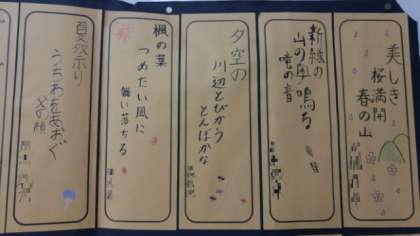 美しき
桜満開
春の山
新緑の
山の奥鳴る
夕空の
川辺とびかう
とんぼかな
楓の葉
つめたい風に
舞い落ちる
夏祭り
うちわをあおぐ
父の顔